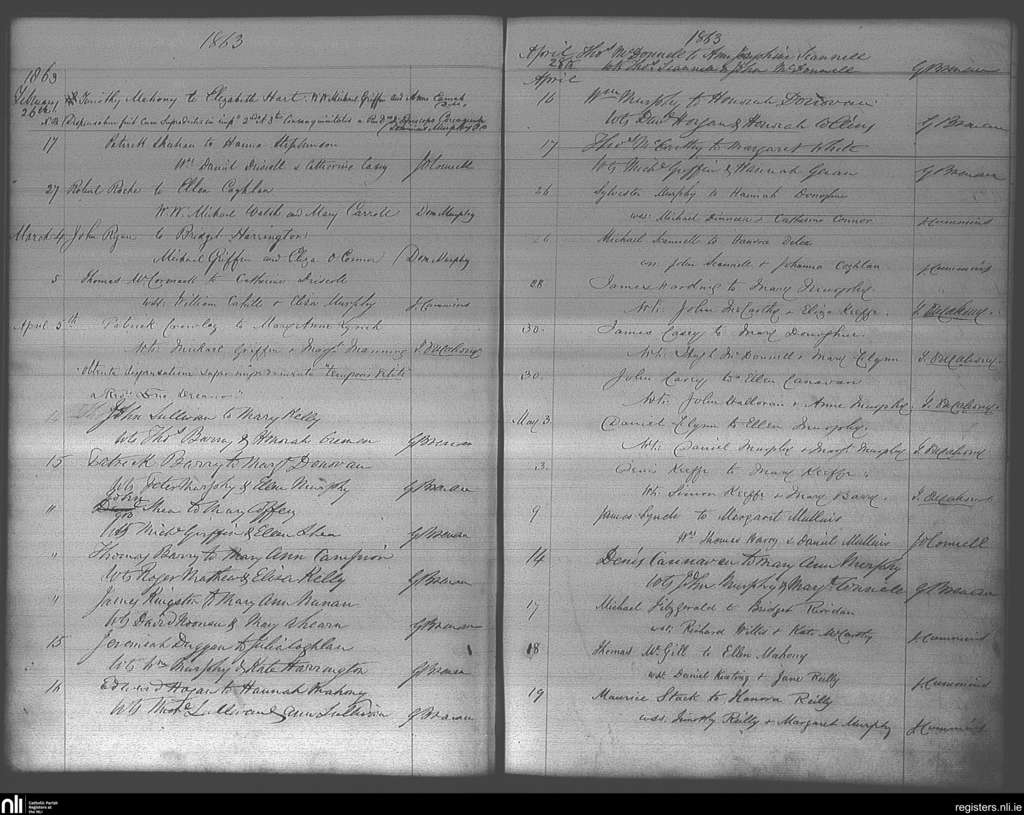 1863
1863
February 26th Timothy Mahony to Elizabeth Hart. W.W. Michael Griffin and Anne
N.B. Dispensation fuit cum Supradictis in imp° 2di et 3tii Consanguinitatis a
Dom. Murphy
17 Patrick Shahan to Hanna Stephenson
Ws Daniel Driscoll & Catherine Casey JO'Connell
27 Robert Roche to Ellen Coghlan
W.W. Michael Walsh and Mary Carroll Dom Murphy
March 4 John Ryan to Bridget Harrington
Michael Griffin and Eliza O'Connor Dom Murphy
5 Thomas McCormack to Catherine Driscoll
wss: William Cahill & Eliza Murphy J. Cummins
April 5th Patrick Crowley to Mary Anne Lynch
Wts: Michael Griffin & Margt Manning
obtenta dispensatione super impedimento "temporis vetiti"
a Revmo Dno
John Sullivan to Mary Kelly
Wts Thos Barry & Honorah GBrenan
15 Patrick Barry to Margt Donovan
Wts Peter Murphy & Ellen Murphy GBrenan
John
GB
" Shea to Mary Coffey
Wts Michl Griffin & Ellen Shea GBrenan
" Thomas Barry to Mary Ann Campion
Wts Roger Mathew & Elisa Kelly GBrenan
" James Kingston to Mary Ann Nunan
Wts David Noonan & Mary Ahearn GBrenan
15 Jeremiah Duggan to Julia Coghlan
Wts Wm Murphy & Kate Harrington GBrenan
16 Edward Hogan to Hannah Mahony
Wts Michl Sullivan & Ann Sullivan GBrenan
1863
April 28th Thos McDonnell to Ann Josephine Scannell
Ws Thos Scannell & John McDonnell GBrenan
April
16 Wm Murphy to Honorah Donovan
Wts Danl Horgan & Honorah Collins GBrenan
17 Thos McCarthy to Margaret White
Wts Michl Griffin & Hannah GBrenan
26 Sylvester Murphy to Hannah Donoghue
wss: Michael Dinneen & Catherine Connor J. Cummins
26 Michael Scannell to Hanora
wss John Scannell & Johanna Coghlan J. Cummins
28 James Harding to Mary Murphy
Wts: John McCarthy & Eliza Keeffe.
30. James Casey to Mary Donoghue
Wts: Hugh McDonnell & Mary Flynn
30. John Carey to Ellen Canavan
Wts: John Halloran & Anne Murphy.
May 3. Daniel Flynn to Ellen Murphy.
Wts: Daniel Murphy & Margt Murphy
3. Denis Keeffe to Mary Keeffe.
Wts: Simon Keeffe & Mary Barry.
9 James Lynch to Margaret Mullins
Ws Thomas Harry & Daniel Mullins JO'Connell
14 Denis Cannavan to Mary Ann Murphy
Wts John Murphy & Margt GBrenan
17 Michael Fitzgerald to Bridget Riordan
wss: Richard Willis & Kate McCarthy J. Cummins
18 Thomas McGill to Ellen Mahony
wss Daniel Keating & Jane Reilly J. Cummins
19 Maurice Stack to Hanora Reilly
wss. Timothy Reilly & Margaret Murphy J. Cummins
nli Catholic Parish
Registers at
the NLI
registers.nli.ie